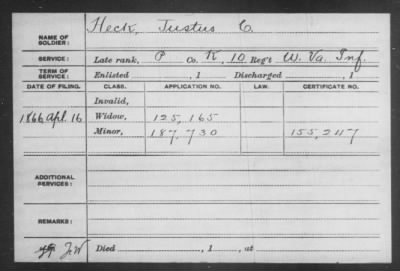 Heck, Justus C.
NAME OF SOLDIER:
SERVICE: Late rank, P Co. K, 10 Reg't W. Va. Inf.
TERM OF SERVICE: Enlisted , 1 Discharged , 1
DATE OF FILING. CLASS. APPLICATION NO. LAW. CERTIFICATE NO.
Invalid,
1866 Apl. 16 Widow, 125,165
Minor, 187,730 155,247
ADDITIONAL SERVICES:
REMARKS:
Died , 1 , at